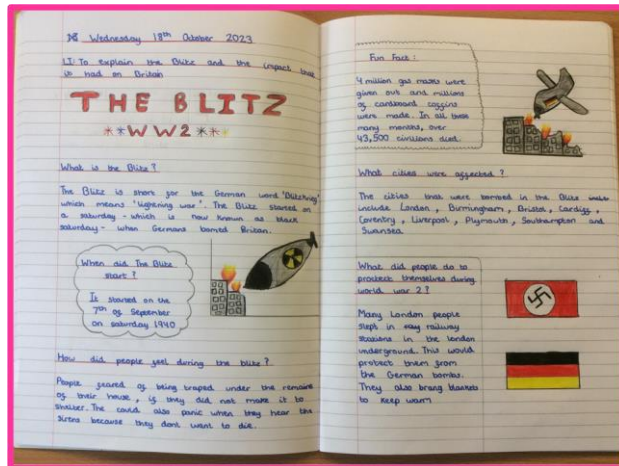 Wednesday 18th October 2023
LI: To explain the Blitz and the impact that
is had on Britain
THE BLITZ
WW2
What is the Blitz?
The Blitz is short for the German word 'Blitzkrieg'
which means 'lightning war'. The Blitz started on
a saturday - which is now known as black
saturday - when Germans bombed Britain.
When did The Blitz
start?
It started on the
7th of September
on saturday 1940
How did people feel during the blitz?
People feared of being traped under the remains
of their house, if they did not make it to
shelter. The could also panic when they hear the
sirens because they dont want to die.
Fun Fact:
4 million gas masks were
given out and millions
of cardboard coffins
were made. In all these
many months, over
43,500 civilians died.
What cities were affected?
The cities that were bombed in the Blitz
include London, Birmingham, Bristol, Cardiff,
Coventry, Liverpool, Plymouth, Southampton and
Swansea.
What did people do to
protect themselves during
world war 2?
Many London people
slept in railway
stations in the london
underground. This would
protect them from
the German bombs.
They also brang blankets
to keep warm